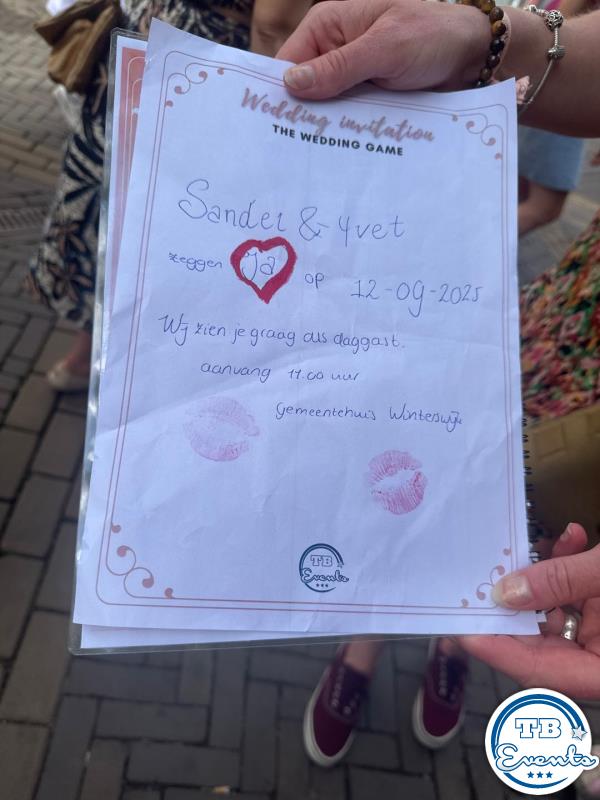 Wedding invitation
THE WEDDING GAME
Sander & Yvet
zeggen ja op 12-09-2025
Wij zien je graag als daggast.
aanvang 11.00 uur
Gemeentehuis Winterswijk
TB
Events
TB
Events